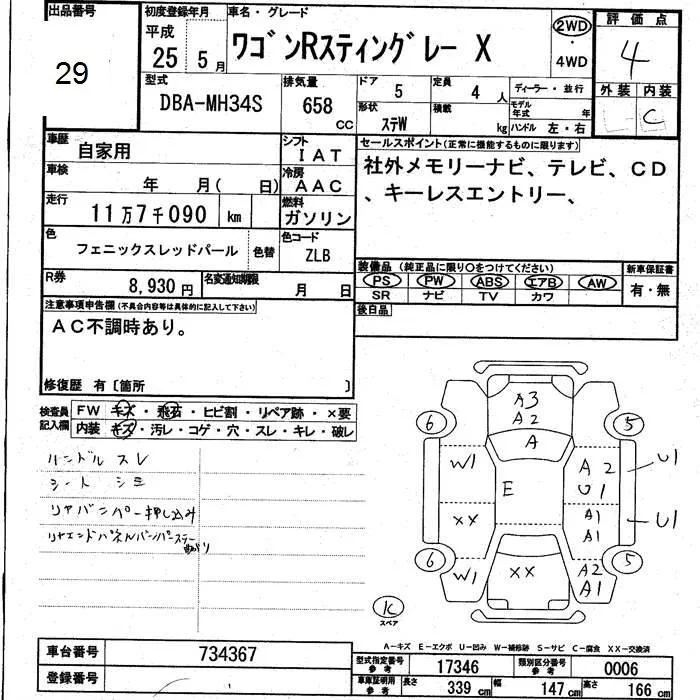 出品番号
29
初度登録年月
平成
25 5月
車名・グレード
ワゴンRスティングレー X
2WD
・
4WD
評価点
4
外装 内装
C
型式
DBA-MH34S
排気量
658
CC
ドア
5
定員
4 人
形状
ステW
積載
kg
ディーラー・並行
モデル年式 年
ハンドル 左・右
車歴
自家用
シフト
IAT
車検
年 月( 日)
冷房
AAC
走行
11万7千090 km
燃料
ガソリン
色
フェニックスレッドパール
色替
色コード
ZLB
R券
8,930円
名変通知期限
月 日
セールスポイント(正常に機能するものに限ります)
社外メモリーナビ、テレビ、CD
、キーレスエントリー、
装備品 (純正品に限り○をつけてください)
PS PW ABS エアB AW
SR ナビ TV カワ
新車保証書
有・無
後日品
注意事項申告欄(不具合内容等は具体的に記入して下さい)
AC不調時あり。
修復歴 有〔箇所 〕
検査員記入欄
FW キズ・飛石・ヒビ割・リペア跡・×要
内装 キズ・汚レ・コゲ・穴・スレ・キレ・破レ
ハンドル スレ
シート シミ
リヤバンパー押し込み
リヤエンドパネルバンパーステー曲がり
A3
A2
A
6
5
W1
E
A2
U1
U1
XX
A1
A1
U1
6
5
W1
XX
A2
A1
K
スペア
A−キズ E−エクボ U−凹み W−補修跡 S−サビ C−腐食 XX−交換済
車台番号
734367
登録番号
型式指定番号
参考
17346
類別区分番号
参考
0006
車庫証明用
参考
長さ 339 cm
幅 147 cm
高さ 166 cm